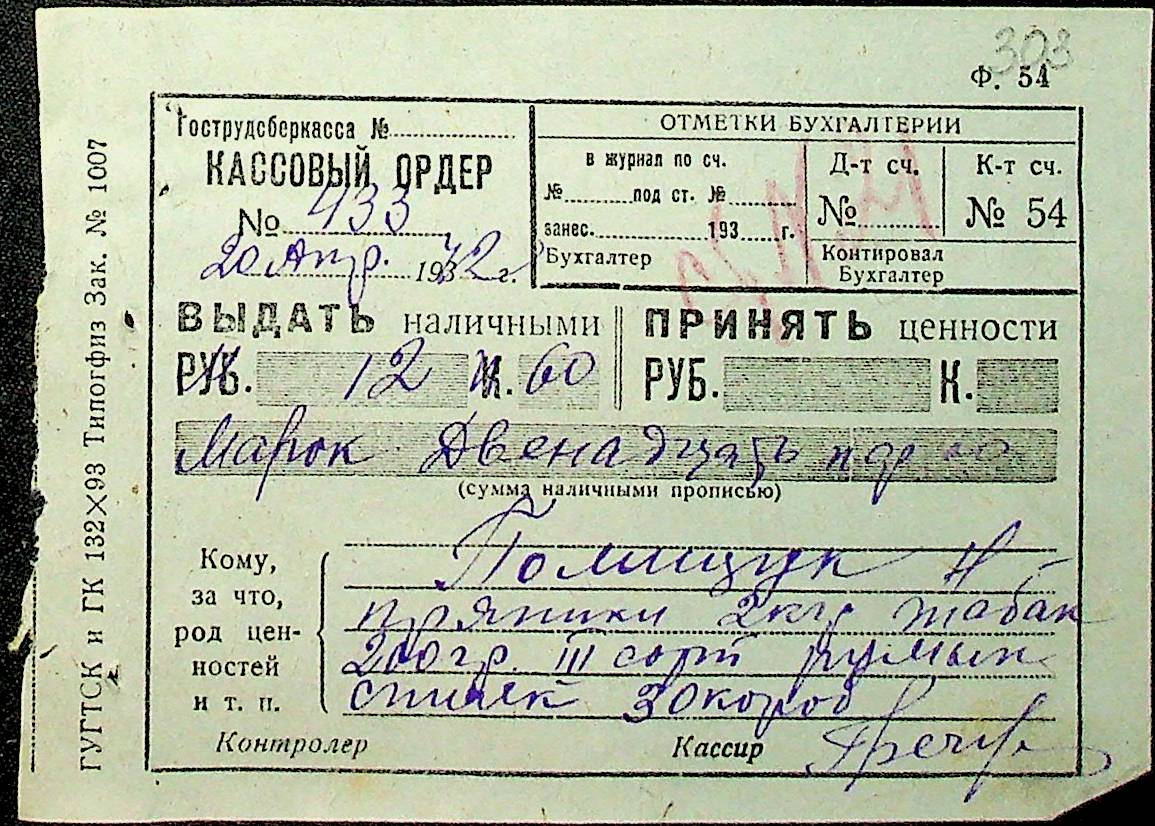 303
Ф. 54
Гострудсберкасса №
КАССОВЫЙ ОРДЕР
№ 433
20 Апр. 1942 г.
ОТМЕТКИ БУХГАЛТЕРИИ
в журнал по сч.
№ под ст. №
занес. 193 г.
Бухгалтер
Д-т сч.
№
К-т сч.
№ 54
Контировал
Бухгалтер
ВЫДАТЬ наличными
РУБ. 12 К. 60
ПРИНЯТЬ ценности
РУБ. К.
Марок Двенадцать
(сумма наличными прописью)
Кому,
за что,
род цен-
ностей
и т. п.
Полищук Н
пряники 2кгр табак
200гр. III сорт румын
спичек 30короб
Контролер
Кассир
ГУГТСК и ГК 132×93 Типогфиз Зак. № 1007